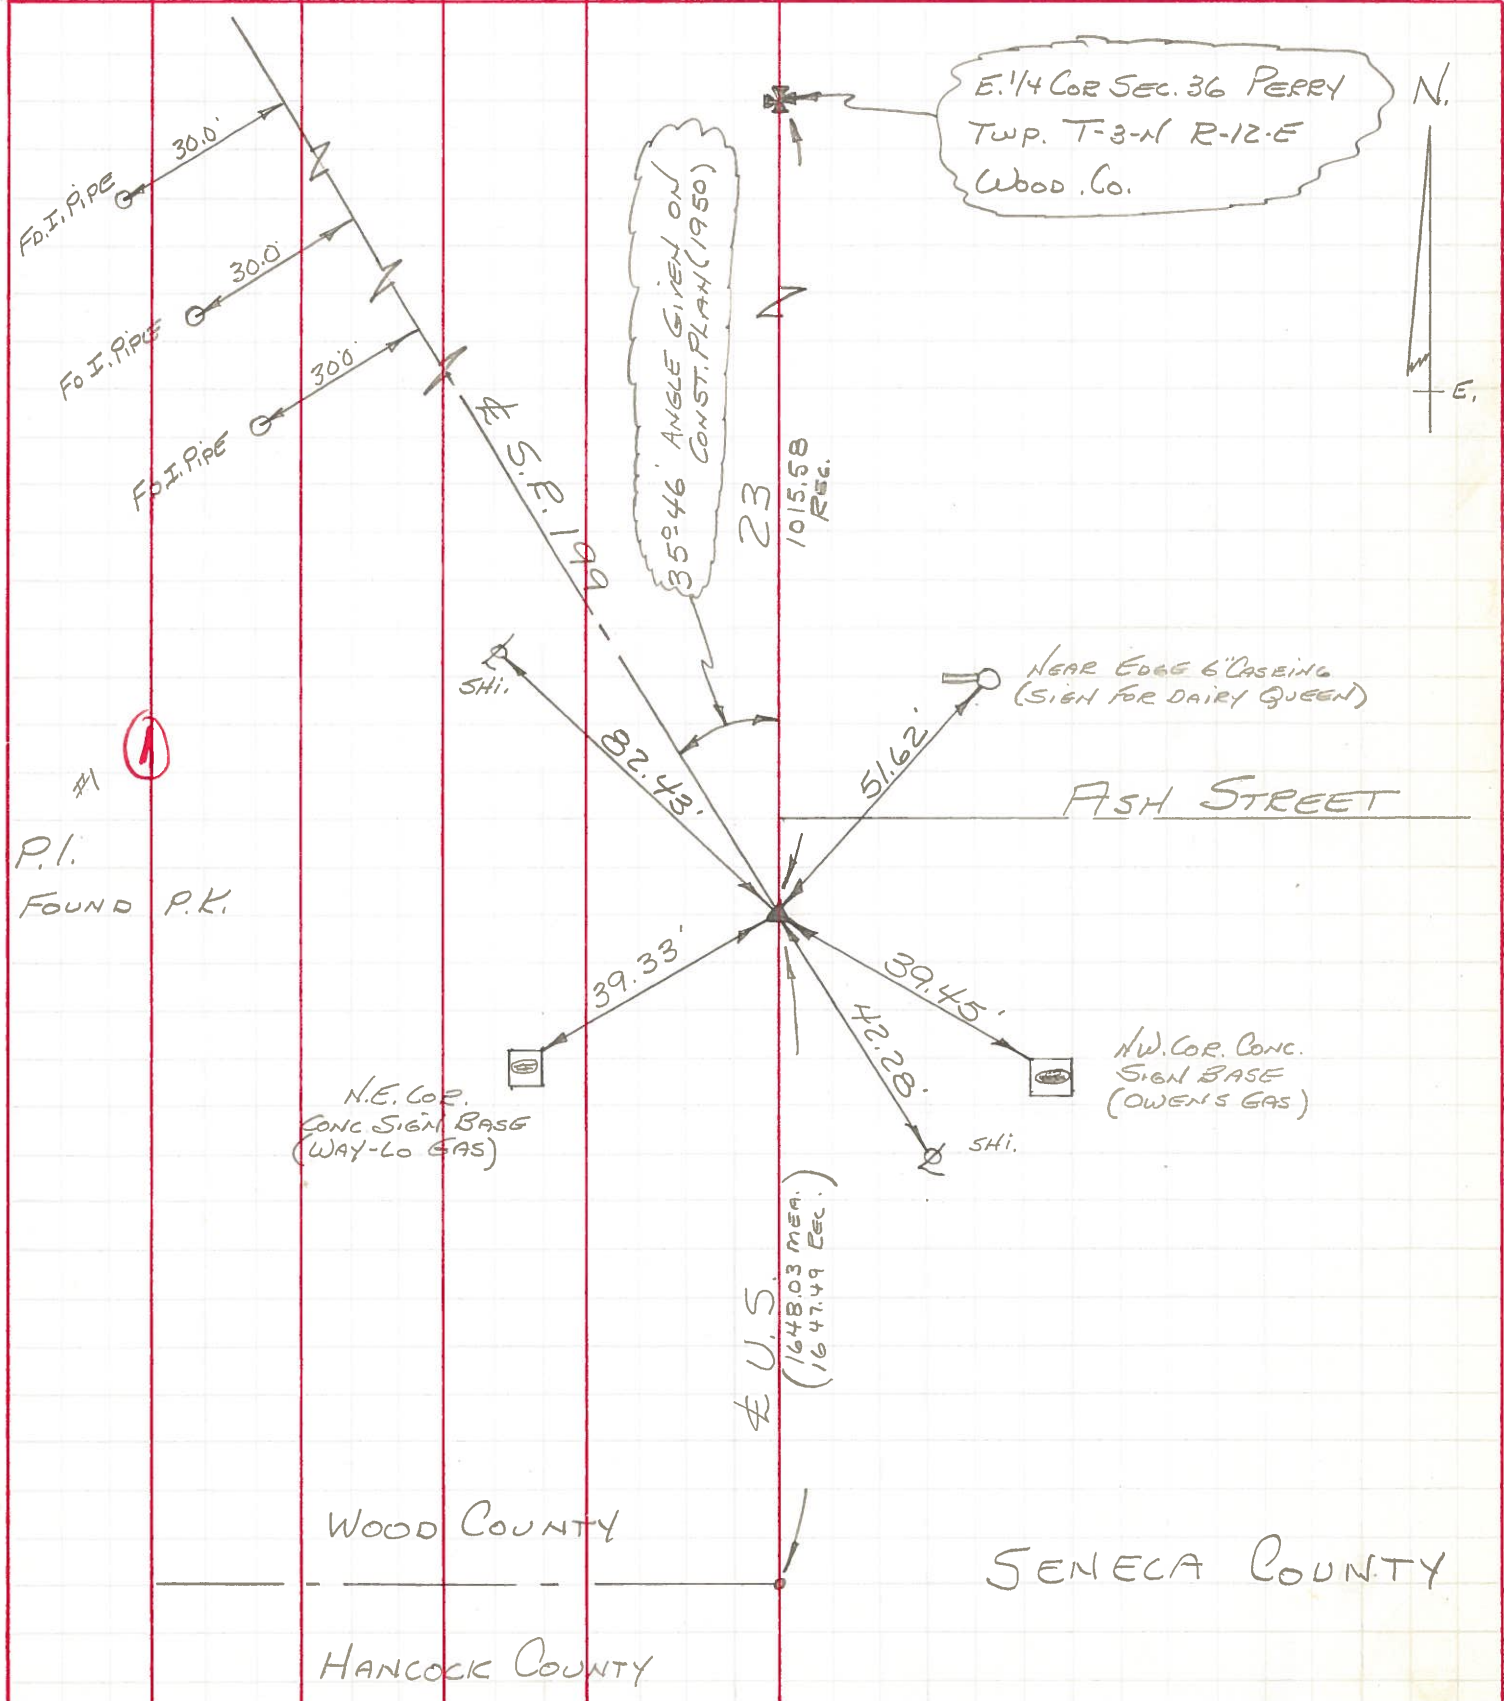 E. 1/4 COR SEC. 36 PERRY
TWP. T-3-N R-12-E
WOOD. CO.
N.
E.
30.0'
FD. I. PIPE
30.0'
FD I. PIPE
30.0'
FD I. PIPE
35°46' ANGLE GIVEN ON
CONST. PLAN (1950)
℄ S.R. 199
23
1015.58
REC.
SHI.
82.43'
NEAR EDGE 6" CASEING
(SIGN FOR DAIRY QUEEN)
51.62'
ASH STREET
#1
1
P.I.
FOUND P.K.
39.33'
39.45'
42.28'
N.E. COR.
CONC. SIGN BASE
(WAY-LO GAS)
N.W. COR. CONC.
SIGN BASE
(OWENS GAS)
SHI.
℄ U.S.
(1648.03 MEA.
1647.49 REC.)
WOOD COUNTY
SENECA COUNTY
HANCOCK COUNTY